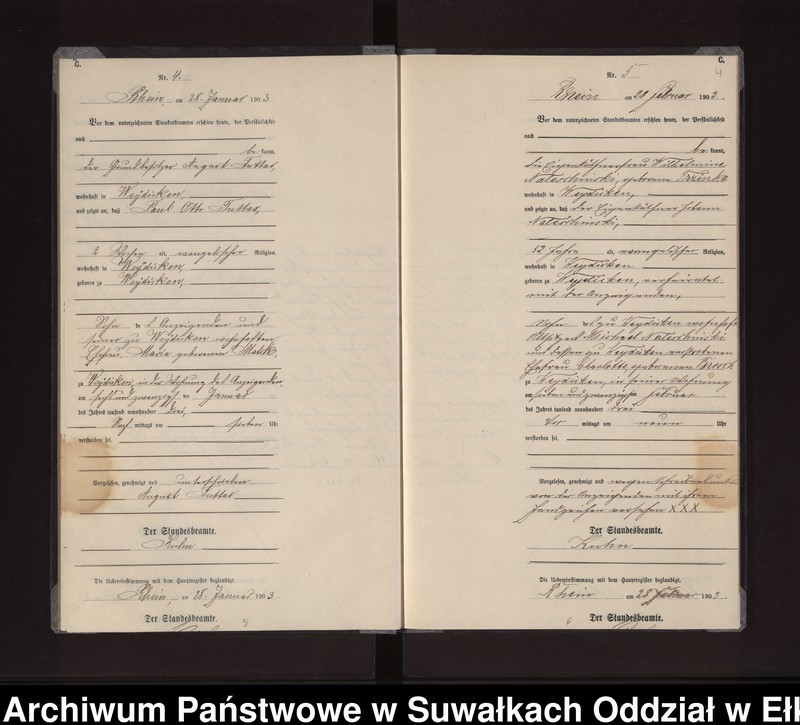 C.
Nr. 4.
Rhein, am 28. Januar 1903
Vor dem unterzeichneten Standesbeamten erschien heute, der Persönlichkeit
nach
be kannt,
der Grundbesitzer August
wohnhaft in Weydicken,
und zeigte an, daß Paul Otto
2 Wochen alt, evangelischer Religion,
wohnhaft in Weydicken,
geboren zu Weydicken,
Sohn des Anzeigenden und
seiner zu Weydicken wohnhaften
Ehefrau Maria geborenen
zu Weydicken, in der Wohnung des Anzeigenden
am sechsundzwanzigsten Januar
des Jahres tausend neunhundert drei,
Nach mittags um sieben Uhr
verstorben sei.
Vorgelesen, genehmigt und unterschrieben
August
Der Standesbeamte.
Kuhn
Die Uebereinstimmung mit dem Hauptregister beglaubigt.
Rhein, am 28. Januar 1903.
Der Standesbeamte.
5
C.
4
Nr. 5
Rhein am 28 Februar 1903.
Vor dem unterzeichneten Standesbeamten erschien heute, der Persönlichkeit
nach
be kannt,
die Eigenkäthnerfrau Wilhelmine
geborene
wohnhaft in Weydicken,
und zeigte an, daß der Eigenkäthner Johann
52 Jahre alt, evangelischer Religion,
wohnhaft in Weydicken
geboren zu Weydicken, verheiratet
mit der Anzeigenden,
Sohn des zu Weydicken wohnhaft
Michael
und dessen zu Weydicken verstorbenen
Ehefrau Charlotte, geborenen
zu Weydicken, in seiner Wohnung
am siebenundzwanzigsten Februar
des Jahres tausend neunhundert drei
Vor mittags um neun Uhr
verstorben sei.
Vorgelesen, genehmigt und wegen
von der Anzeigenden mit ihrem
Handzeichen versehen XXX
Der Standesbeamte.
Kuhn
Die Uebereinstimmung mit dem Hauptregister beglaubigt.
Rhein am 28 Februar 1903.
Der Standesbeamte.
6
Archiwum Państwowe w Suwałkach Oddział w Eł